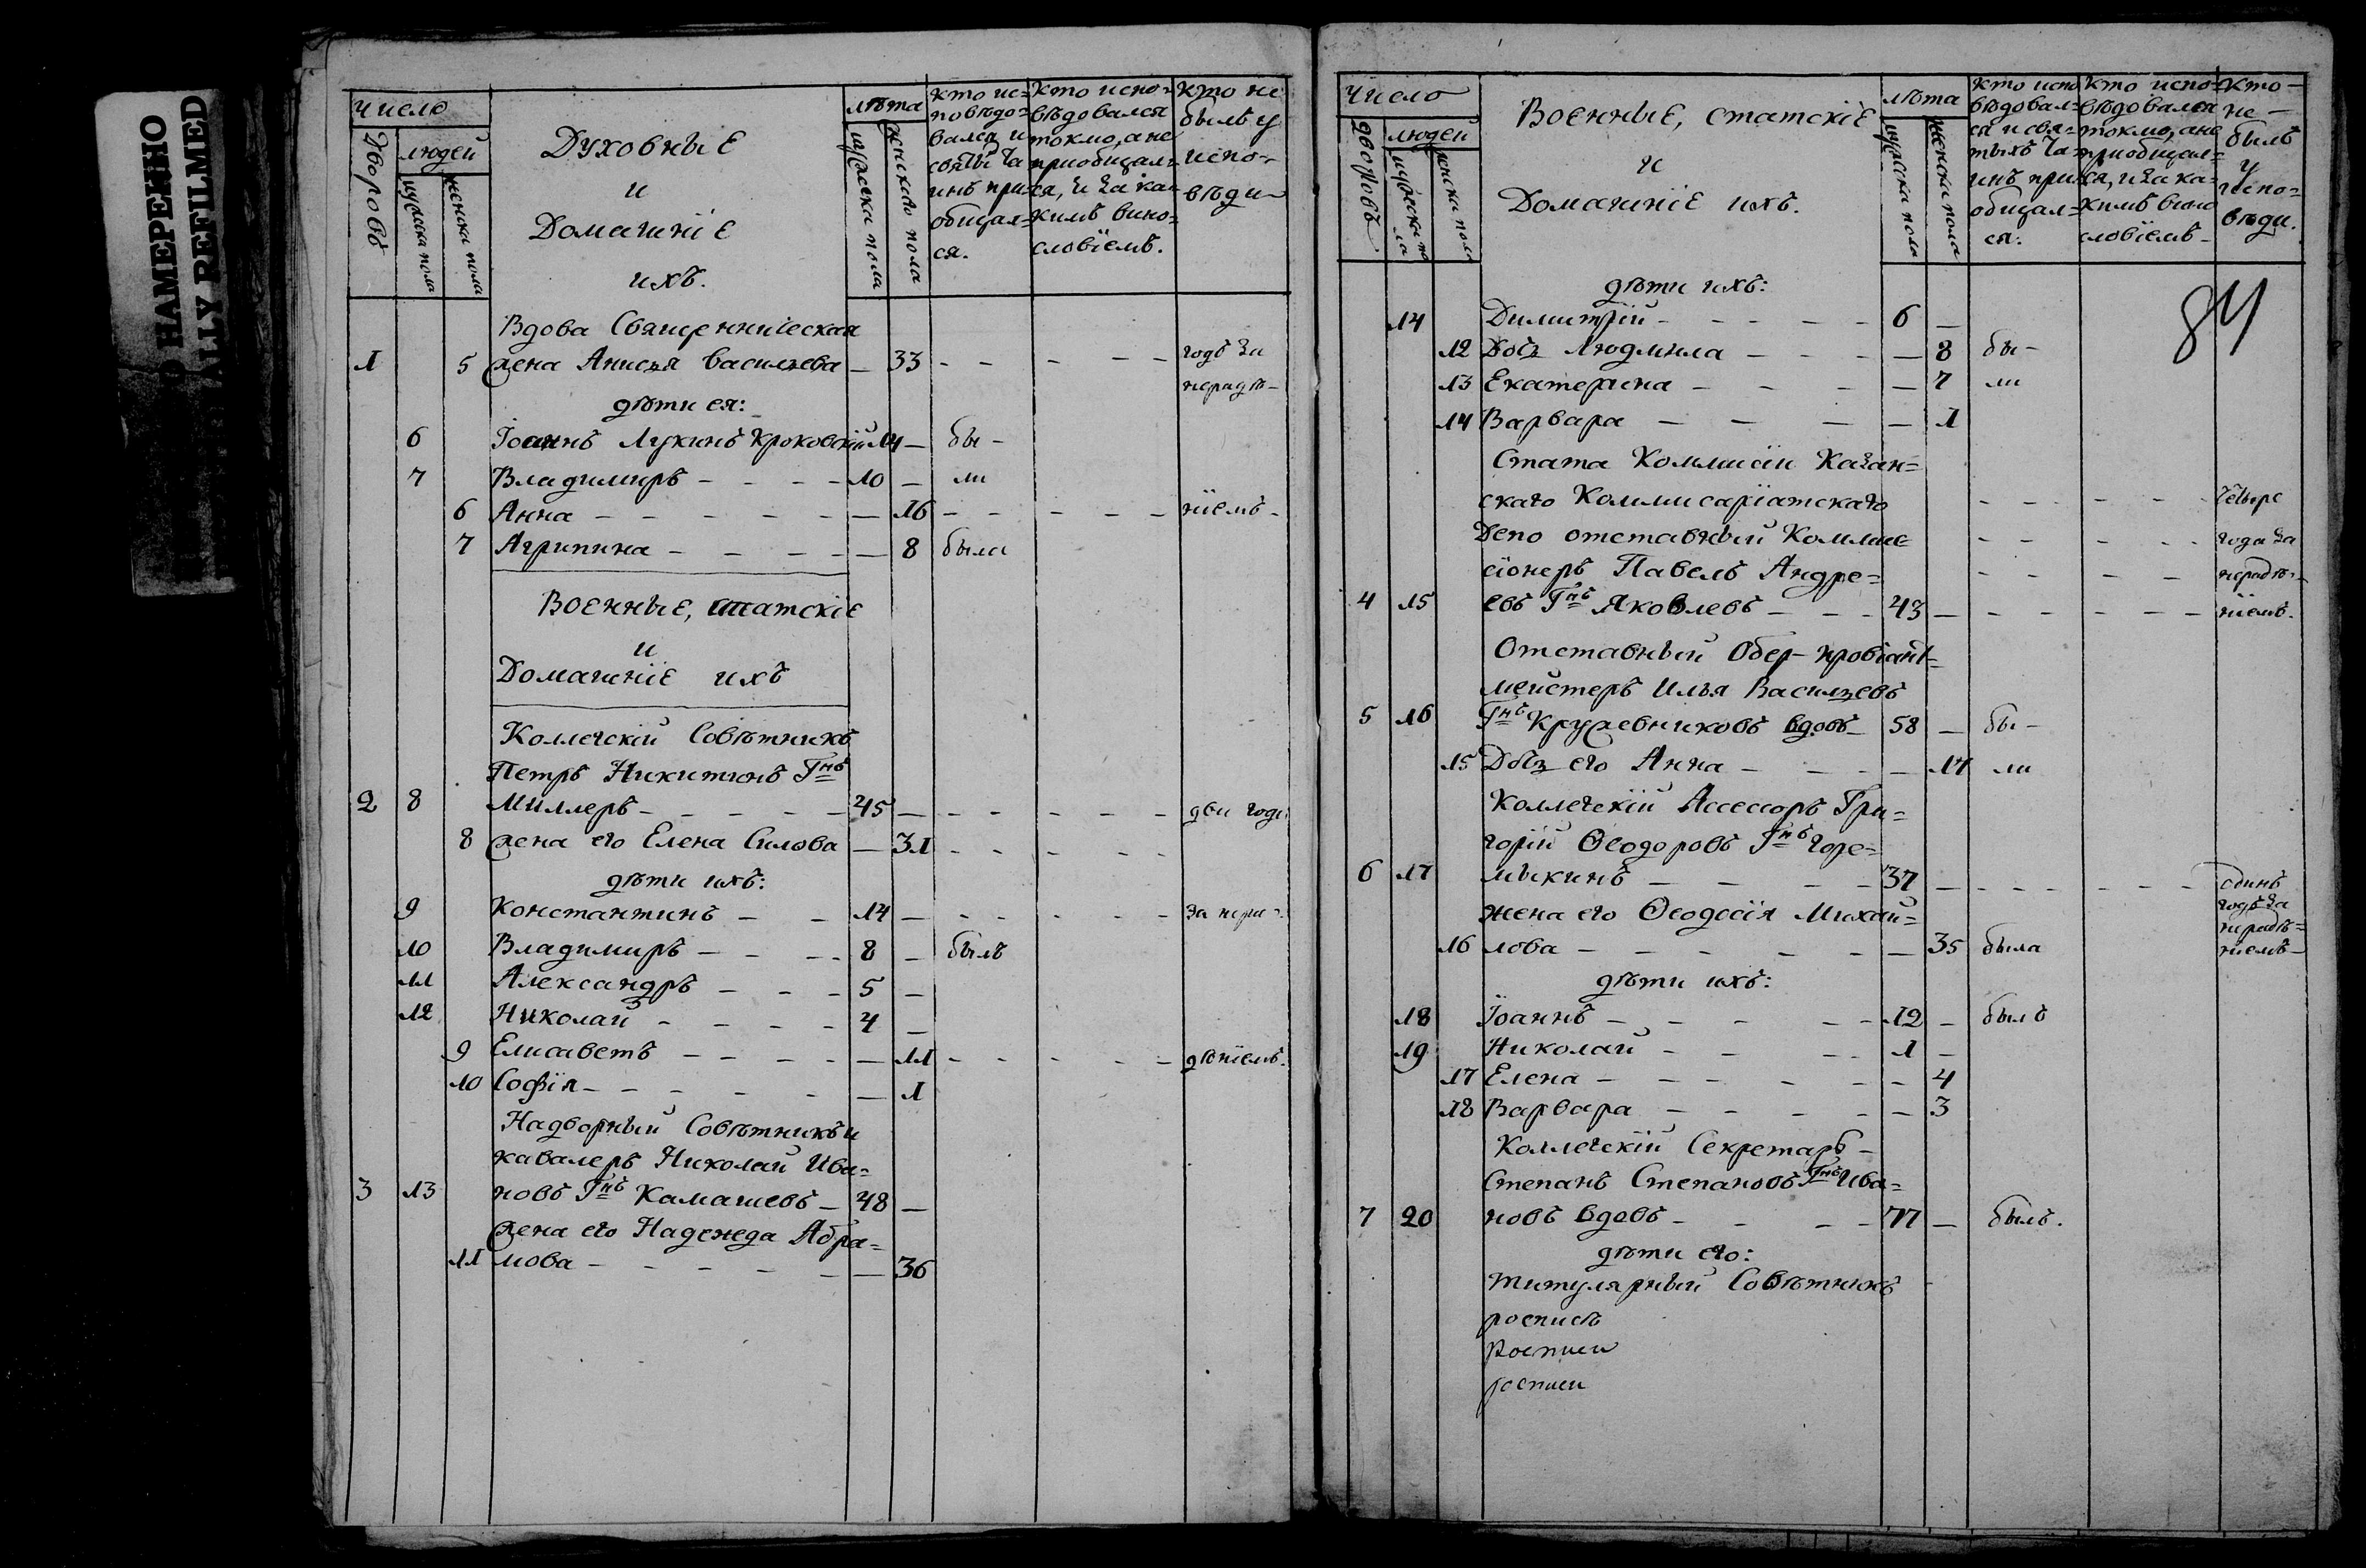 НАМЕРЕННО
ALLY REFILMED
Число
Дворовъ
людей
мужеска пола
женска пола
Духовные
и
Домашніе
ихъ.
лѣта
мужеска пола
женскаго пола
кто ис=
повѣдо=
вался и
святы҃ та
инъ при=
общал=
ся.
Кто испо=
вѣдовался
токмо, а не
приобщал=
ся, и за ка=
кимъ вино=
словїемъ.
Кто не
былъ у
испо=
вѣди
Вдова Священническая
1 5 жена Анисья Васильева — 33 годъ за
нерадѣ-
дѣти ея:
6 Іоаннъ Лукинъ Кроковскій 14 — бы-
7 Владимиръ 10 — ли
6 Анна — 16 нїемъ
7 Агрипина — 8 была
Военные, статскіе
и
Домашніе ихъ
Коллегскій Совѣтникъ
Петръ Никитинъ Гнъ
2 8 Миллеръ 45 — два года
8 жена его Елена Силова — 31
дѣти ихъ:
9 Константинъ 14 — за нера-
10 Владимиръ 8 — былъ
11 Александръ 5 —
12 Николай 4 —
9 Елисаветъ — 11 дѣнїемъ.
10 Софїя — 1
Надворный Совѣтникъ и
кавалеръ Николай Ива=
3 13 новъ Гнъ Камашевъ 48 —
жена его Надежда Абра=
11 мова — 36
Число
дворовъ
людей
мужеска по
ла
женска пола
Военные, статскіе
и
Домашніе ихъ.
лѣта
мужеска пола
женска пола
кто испо
вѣдовал=
ся и свя=
тыхъ та=
инъ при
общал=
ся:
кто испо=
вѣдовался
токмо, а не
приобщал=
ся, и за ка=
кимъ вино
словїемъ
Кто
не
былъ
у
испо=
вѣди.
84
дѣти ихъ:
14 Димитрїй 6 —
12 Дочь Людмила — 8 бы-
13 Екатерина — 7 ли
14 Варвара — 1
Стата Коммисїи Казан=
скаго Коммисарїатскаго четыре
Депо отставный Коммис= года за
сїонеръ Павелъ Андре= нерадѣ-
4 15 евъ Гнъ Яковлевъ 43 — нїемъ.
Отставный Обер-провїант=
мейстеръ Илья Васильевъ
5 16 Гнъ Кружевниковъ вдовъ 58 — бы-
15 Дочь его Анна — 14 ли
Коллегскїй Ассессоръ Гри=
горїй Ѳеодоровъ Гнъ Горе=
6 17 мыкинъ 37 — одинъ
годъ за
нерадѣ=
нїемъ
жена его Ѳеодосїя Михай=
16 лова — 35 была
дѣти ихъ:
18 Іоаннъ 12 — былъ
19 Николай 1 —
17 Елена — 4
18 Варвара — 3
Коллегскїй Секретарь
Степанъ Степановъ Гнъ Ива=
7 20 новъ вдовъ 77 — былъ.
дѣти его:
Титулярный Совѣтникъ
росписъ
росписи
росписи